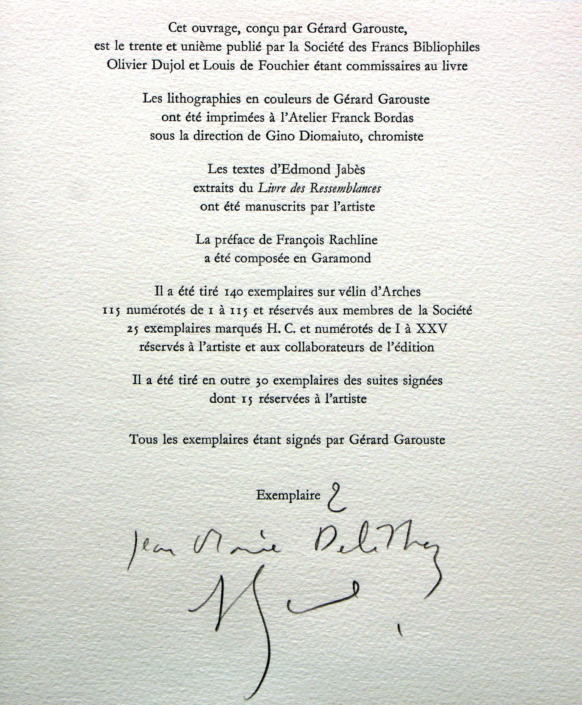 Cet ouvrage, conçu par Gérard Garouste,
est le trente et unième publié par la Société des Francs Bibliophiles
Olivier Dujol et Louis de Fouchier étant commissaires au livre
Les lithographies en couleurs de Gérard Garouste
ont été imprimées à l'Atelier Franck Bordas
sous la direction de Gino Diomaiuto, chromiste
Les textes d'Edmond Jabès
extraits du Livre des Ressemblances
ont été manuscrits par l'artiste
La préface de François Rachline
a été composée en Garamond
Il a été tiré 140 exemplaires sur vélin d'Arches
115 numérotés de 1 à 115 et réservés aux membres de la Société
25 exemplaires marqués H. C. et numérotés de I à XXV
réservés à l'artiste et aux collaborateurs de l'édition
Il a été tiré en outre 30 exemplaires des suites signées
dont 15 réservées à l'artiste
Tous les exemplaires étant signés par Gérard Garouste
Exemplaire 2
Jean Marie